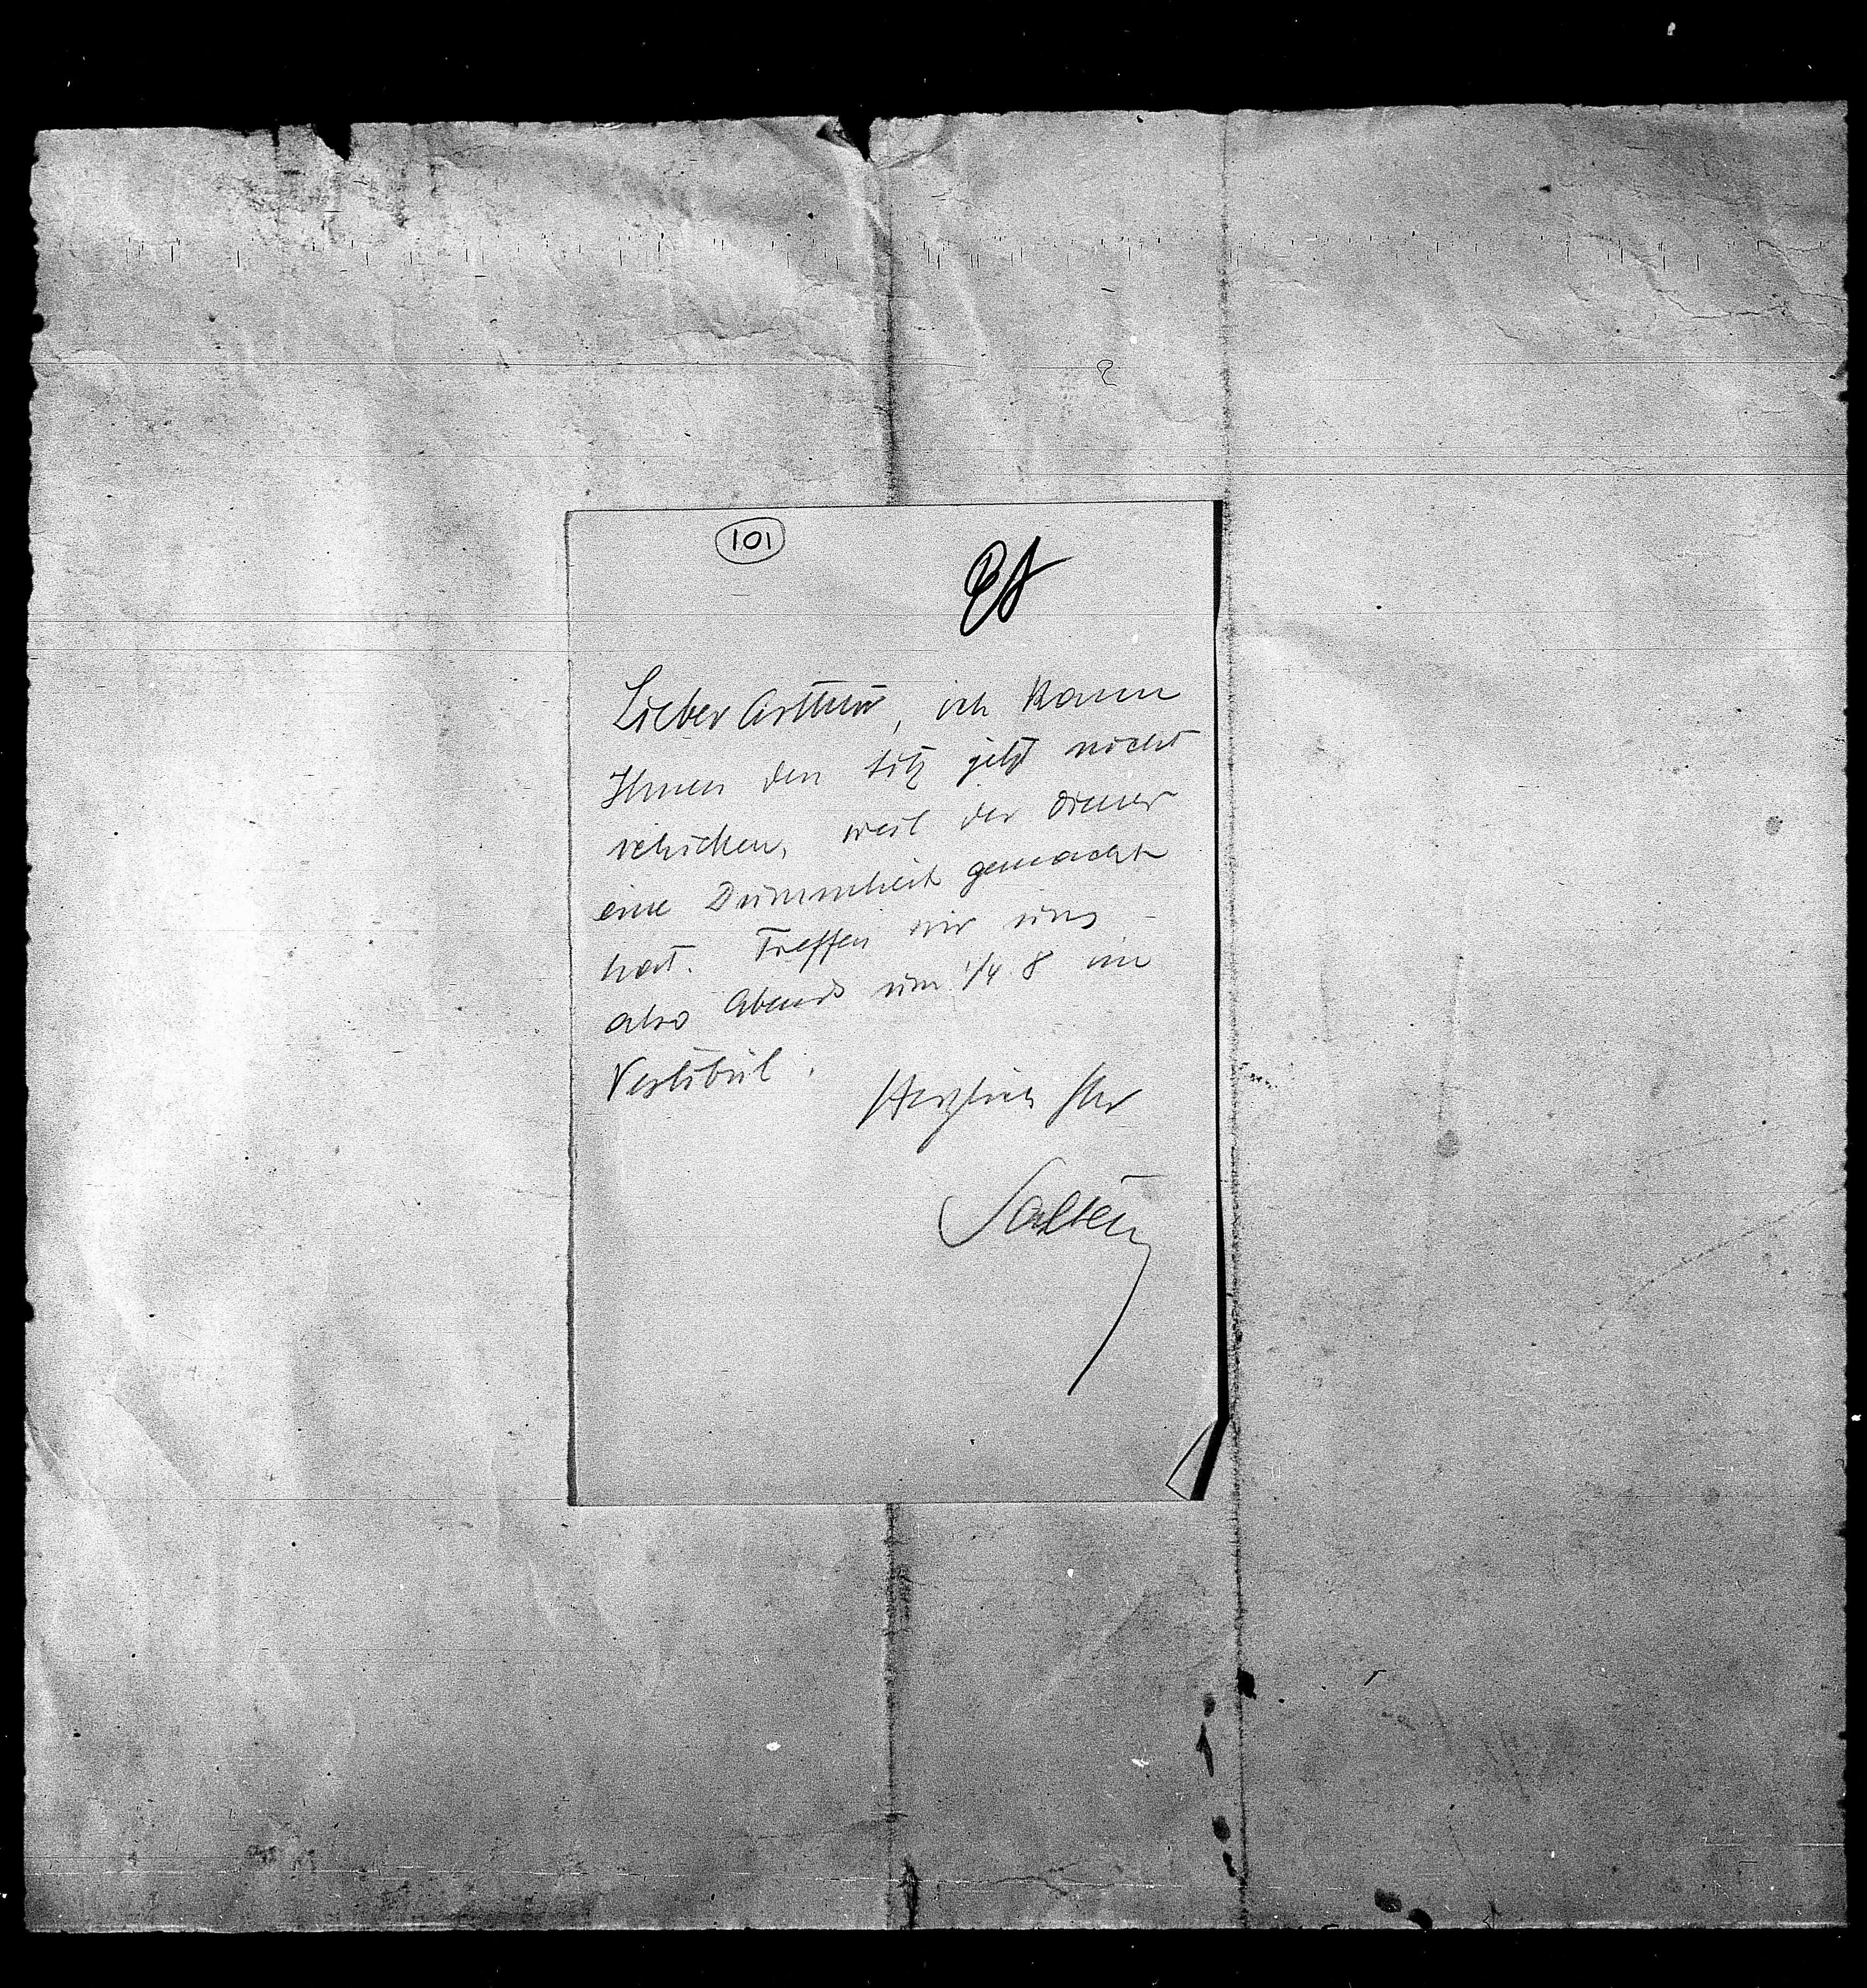 101
Lieber Arthur, ich kann
Ihnen den Sitz jetzt nicht
schicken, weil der Diener
eine Dummheit gemacht
hat. Treffen wir uns
also Abends um 1/4 8 im
Vestibül.
Herzlich Ihr
Salten